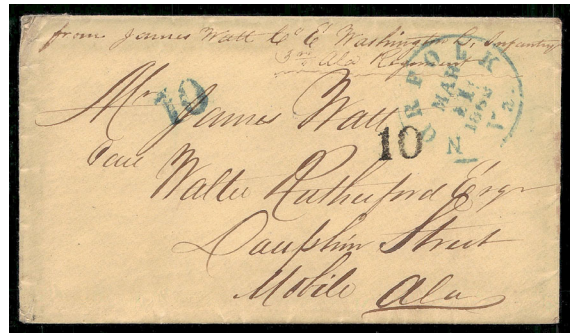 from James Watt Co "C" Washington L. Infantry
3rd Ala Regiment
NORFOLK Va.
MAR
21
1862
10
10
Mr James Watt
Care Walter Rutherford Esqr
Dauphin Street
Mobile Ala